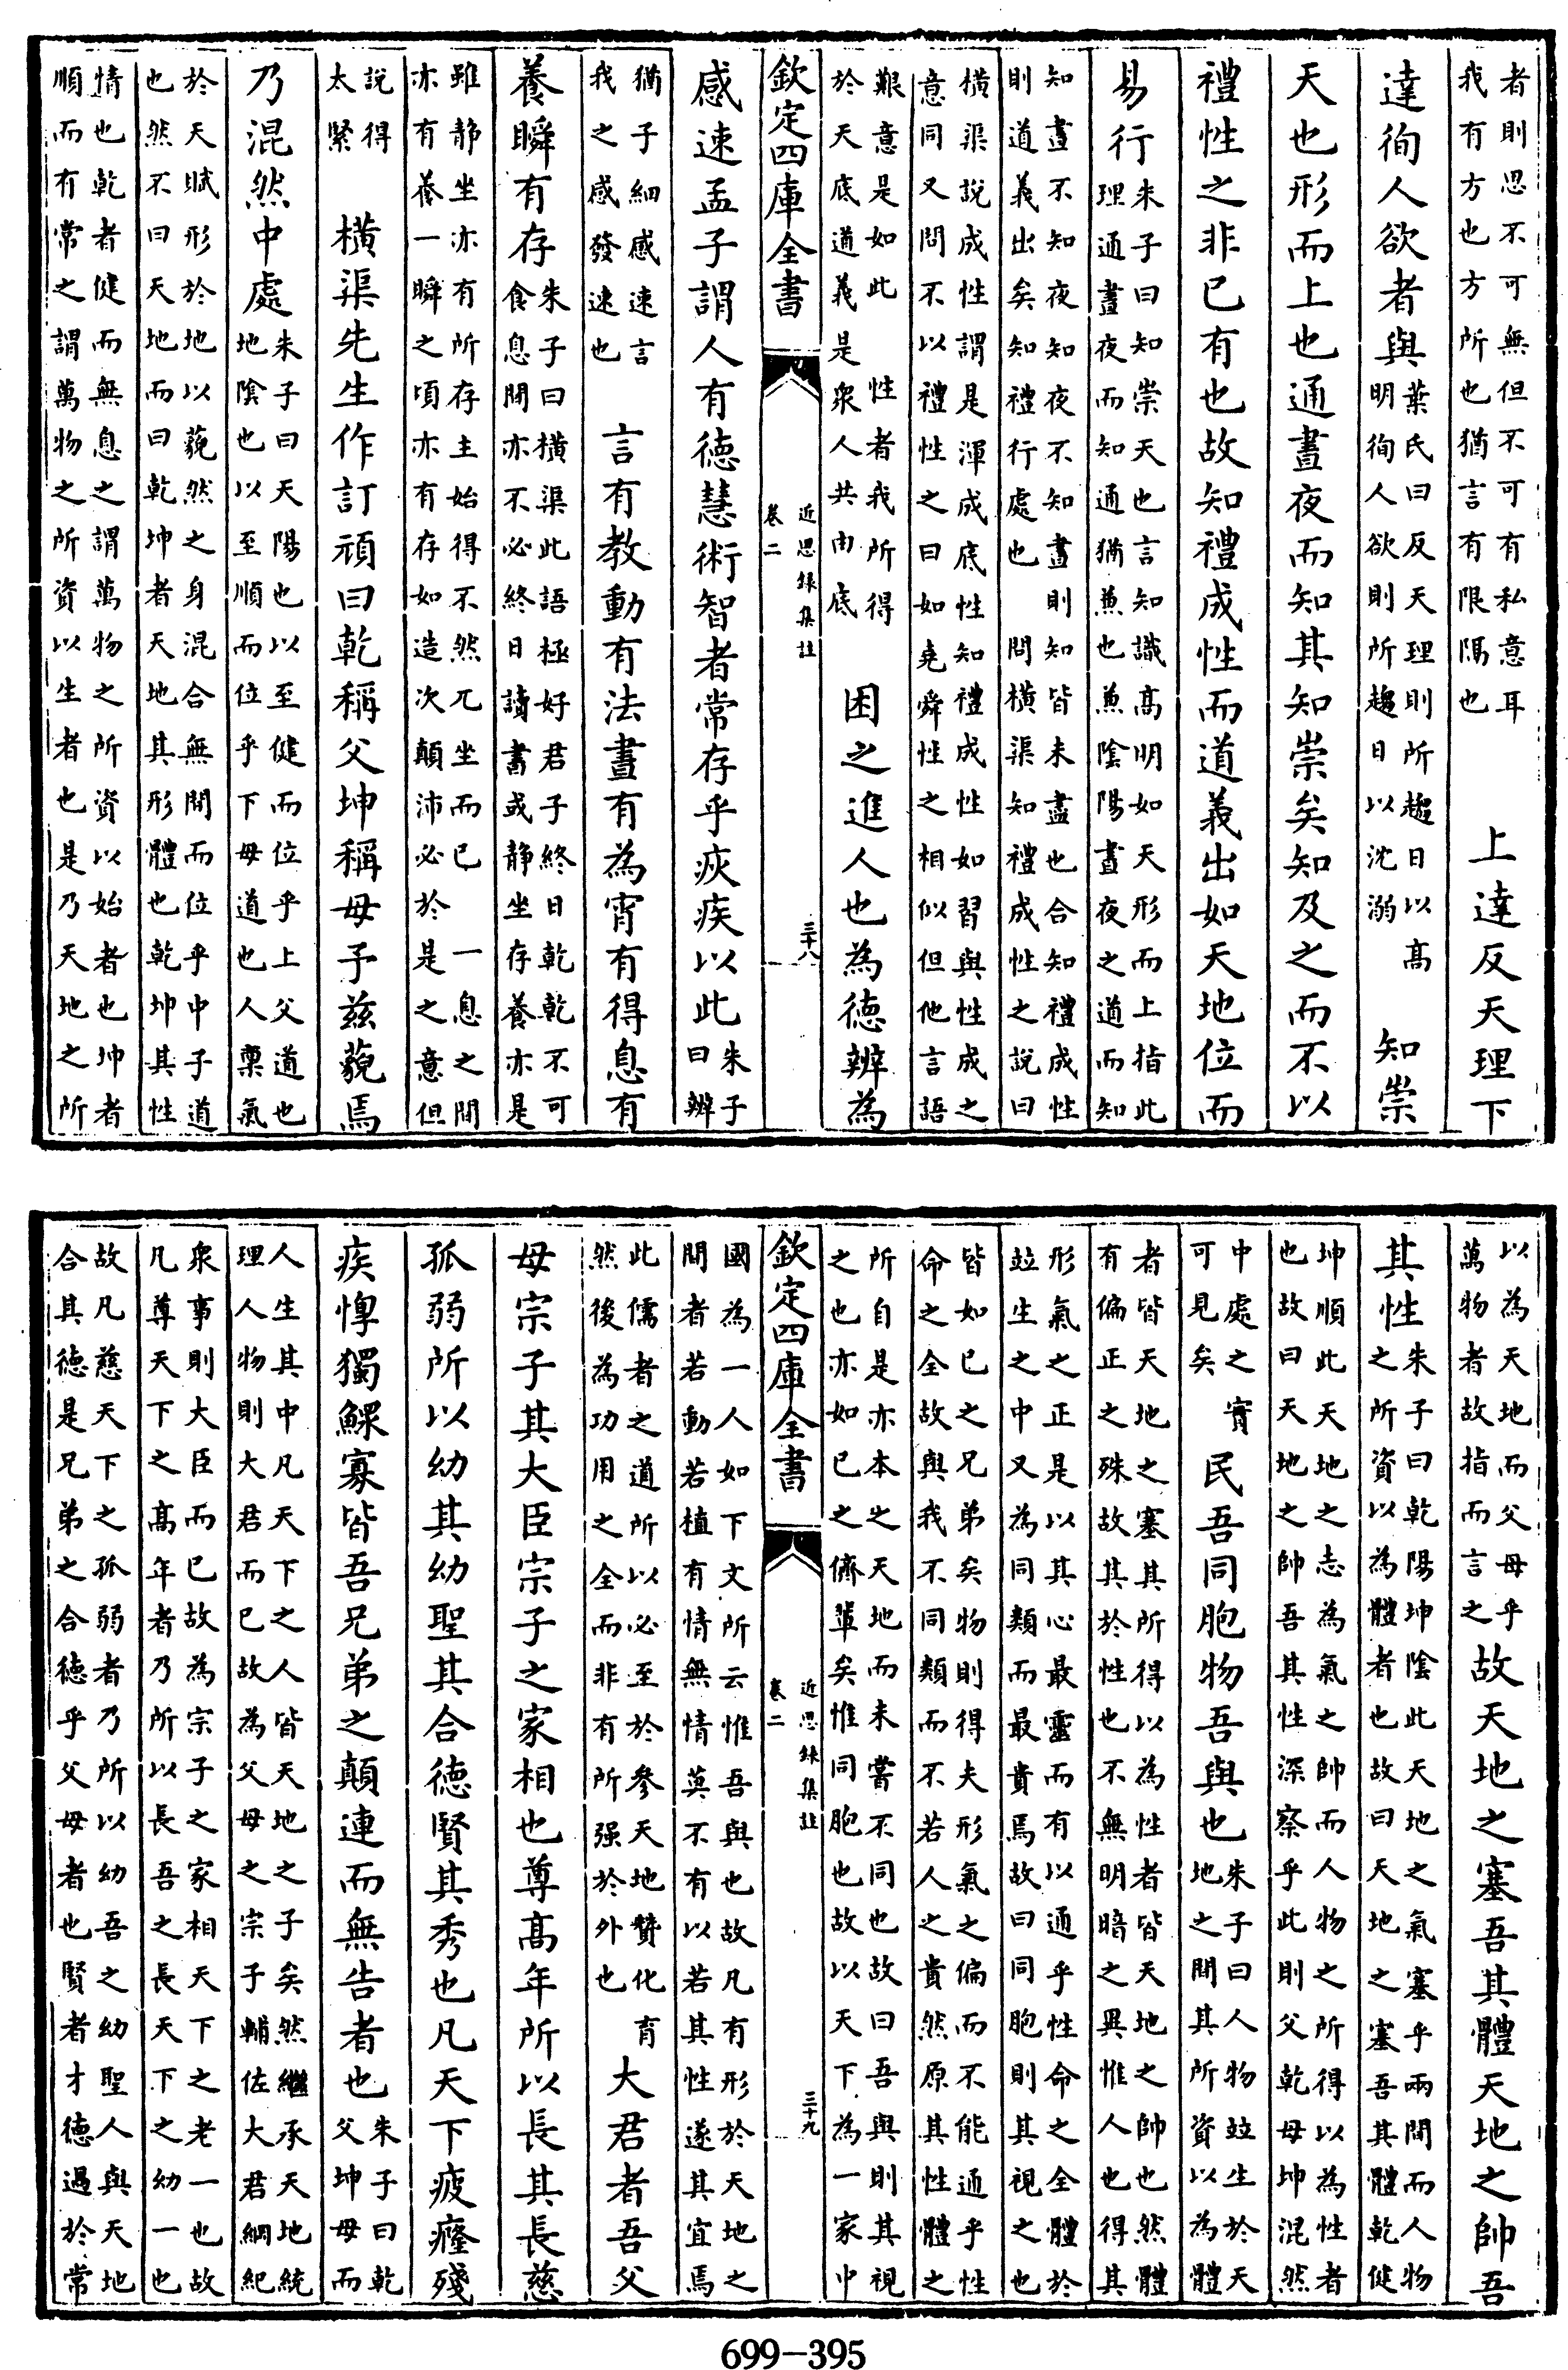 者則思不可無但不可有私意耳
我有方也方所也猶言有限隔也
上達反天理下
達徇人欲者與
葉氏曰反天理則所趨日以高
明徇人欲則所趨日以沈溺
知崇
天也形而上也通晝夜而知其知崇矣知及之而不以
禮性之非已有也故知禮成性而道義出如天地位而
易行
朱子曰知崇天也言知識髙明如天形而上指此
理通晝夜而知通猶兼也兼陰陽晝夜之道而知
知晝不知夜知夜不知晝則知皆未盡也合知禮成性
則道義出矣知禮行處也 問橫渠知禮成性之說曰
橫渠說成性謂是渾成底性知禮成性如習與性成之
意同又問不以禮性之曰如堯舜性之相似但他言語
艱意是如此 性者我所得
於天底道義是衆人共由底
困之進人也為德辨為
欽定四庫全書
近思録集註
卷二
三十八
感速孟子謂人有德慧術智者常存乎疢疾以此
朱子
曰辨
猶子細感速言
我之感發速也
言有教動有法晝有為宵有得息有
養瞬有存
朱子曰橫渠此語極好君子終日乾乾不可
食息間亦不必終日讀書或静坐存養亦是
雖静坐亦有所存主始得不然兀坐而已 一息之間
亦有養一瞬之頃亦有存如造次顛沛必於是之意但
說得
太緊
橫渠先生作訂頑曰乾稱父坤稱母予兹藐焉
乃混然中處
朱子曰天陽也以至健而位乎上父道也
地陰也以至順而位乎下母道也人禀氣
於天賦形於地以藐然之身混合無間而位乎中子道
也然不曰天地而曰乾坤者天地其形體也乾坤其性
情也乾者健而無息之謂萬物之所資以始者也坤者
順而有常之謂萬物之所資以生者也是乃天地之所
以為天地而父母乎
萬物者故指而言之
故天地之塞吾其體天地之帥吾
其性
朱子曰乾陽坤陰此天地之氣塞乎兩間而人物
之所資以為體者也故曰天地之塞吾其體乾健
坤順此天地之志為氣之帥而人物之所得以為性者
也故曰天地之帥吾其性深察乎此則父乾母坤混然
中處之實
可見矣
民吾同胞物吾與也
朱子曰人物竝生於天
地之間其所資以為體
者皆天地之塞其所得以為性者皆天地之帥也然體
有偏正之殊故其於性也不無明暗之異惟人也得其
形氣之正是以其心最靈而有以通乎性命之全體於
竝生之中又為同類而最貴焉故曰同胞則其視之也
皆如已之兄弟矣物則得夫形氣之偏而不能通乎性
命之全故與我不同類而不若人之貴然原其性體之
所自是亦本之天地而未嘗不同也故曰吾與則其視
之也亦如已之儕輩矣惟同胞也故以天下為一家中
欽定四庫全書
近思録集註
卷二
三十九
國為一人如下文所云惟吾與也故凡有形於天地之
間者若動若植有情無情莫不有以若其性遂其宜焉
此儒者之道所以必至於參天地贊化育
然後為功用之全而非有所强於外也
大君者吾父
母宗子其大臣宗子之家相也尊髙年所以長其長慈
孤弱所以幼其幼聖其合德賢其秀也凡天下疲癃殘
疾惸獨鰥寡皆吾兄弟之顛連而無告者也
朱子曰乾
父坤母而
人生其中凡天下之人皆天地之子矣然繼承天地統
理人物則大君而已故為父母之宗子輔佐大君綱紀
衆事則大臣而已故為宗子之家相天下之老一也故
凡尊天下之髙年者乃所以長吾之長天下之幼一也
故凡慈天下之孤弱者乃所以幼吾之幼聖人與天地
合其德是兄弟之合德乎父母者也賢者才德過於常
699-395